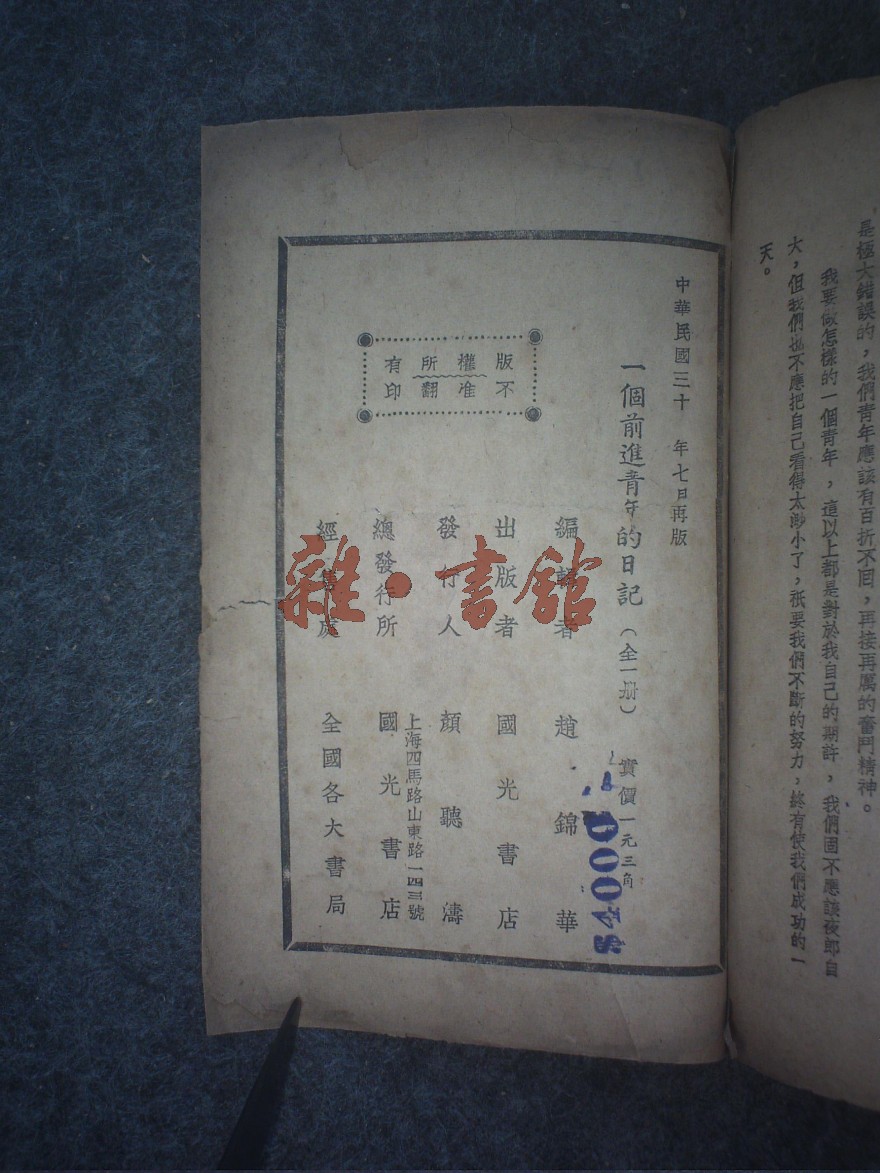 是極大錯誤的，我們青年應該有百折不囘，再接再厲的奮鬥精神。
我要做怎樣的一個青年，這以上都是對於我自己的期許，我們固不應該夜郎自
大，但我們也不應把自己看得太渺小了，祇要我們不斷的努力，終有使我們成功的一
天。
中華民國三十　年七日再版
一個前進青年的日記（全一册）　實價一元三角
$4000
編輯者　趙錦華
出版者　國光書店
發行人　顏聽濤
上海四馬路山東路一四三號
總發行所　國光書店
經售處　全國各大書局
版權所有
不准翻印
雜·書館